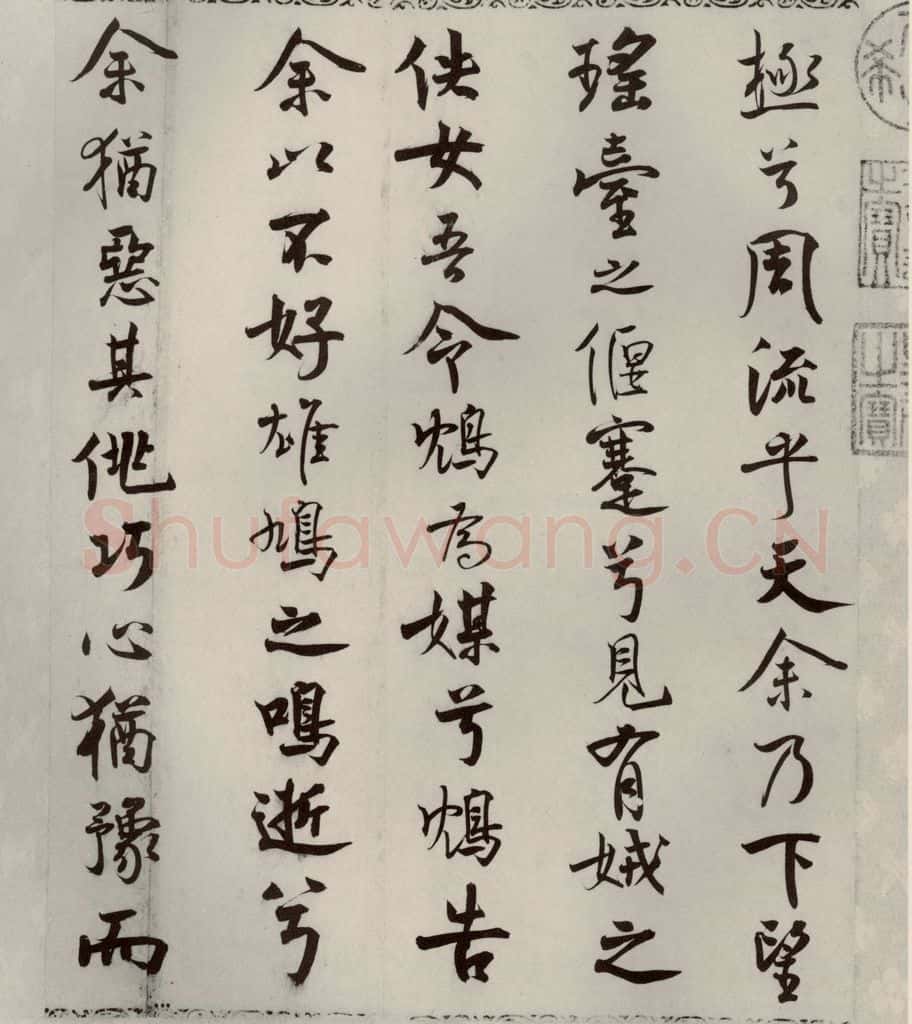 極兮周流乎天余乃下望
瑤臺之偃蹇兮見有娀之
佚女吾令鴆為媒兮鴆告
余以不好雄鳩之鳴逝兮
余猶惡其佻巧心猶豫而
之寶
之寶
Shufawang.CN